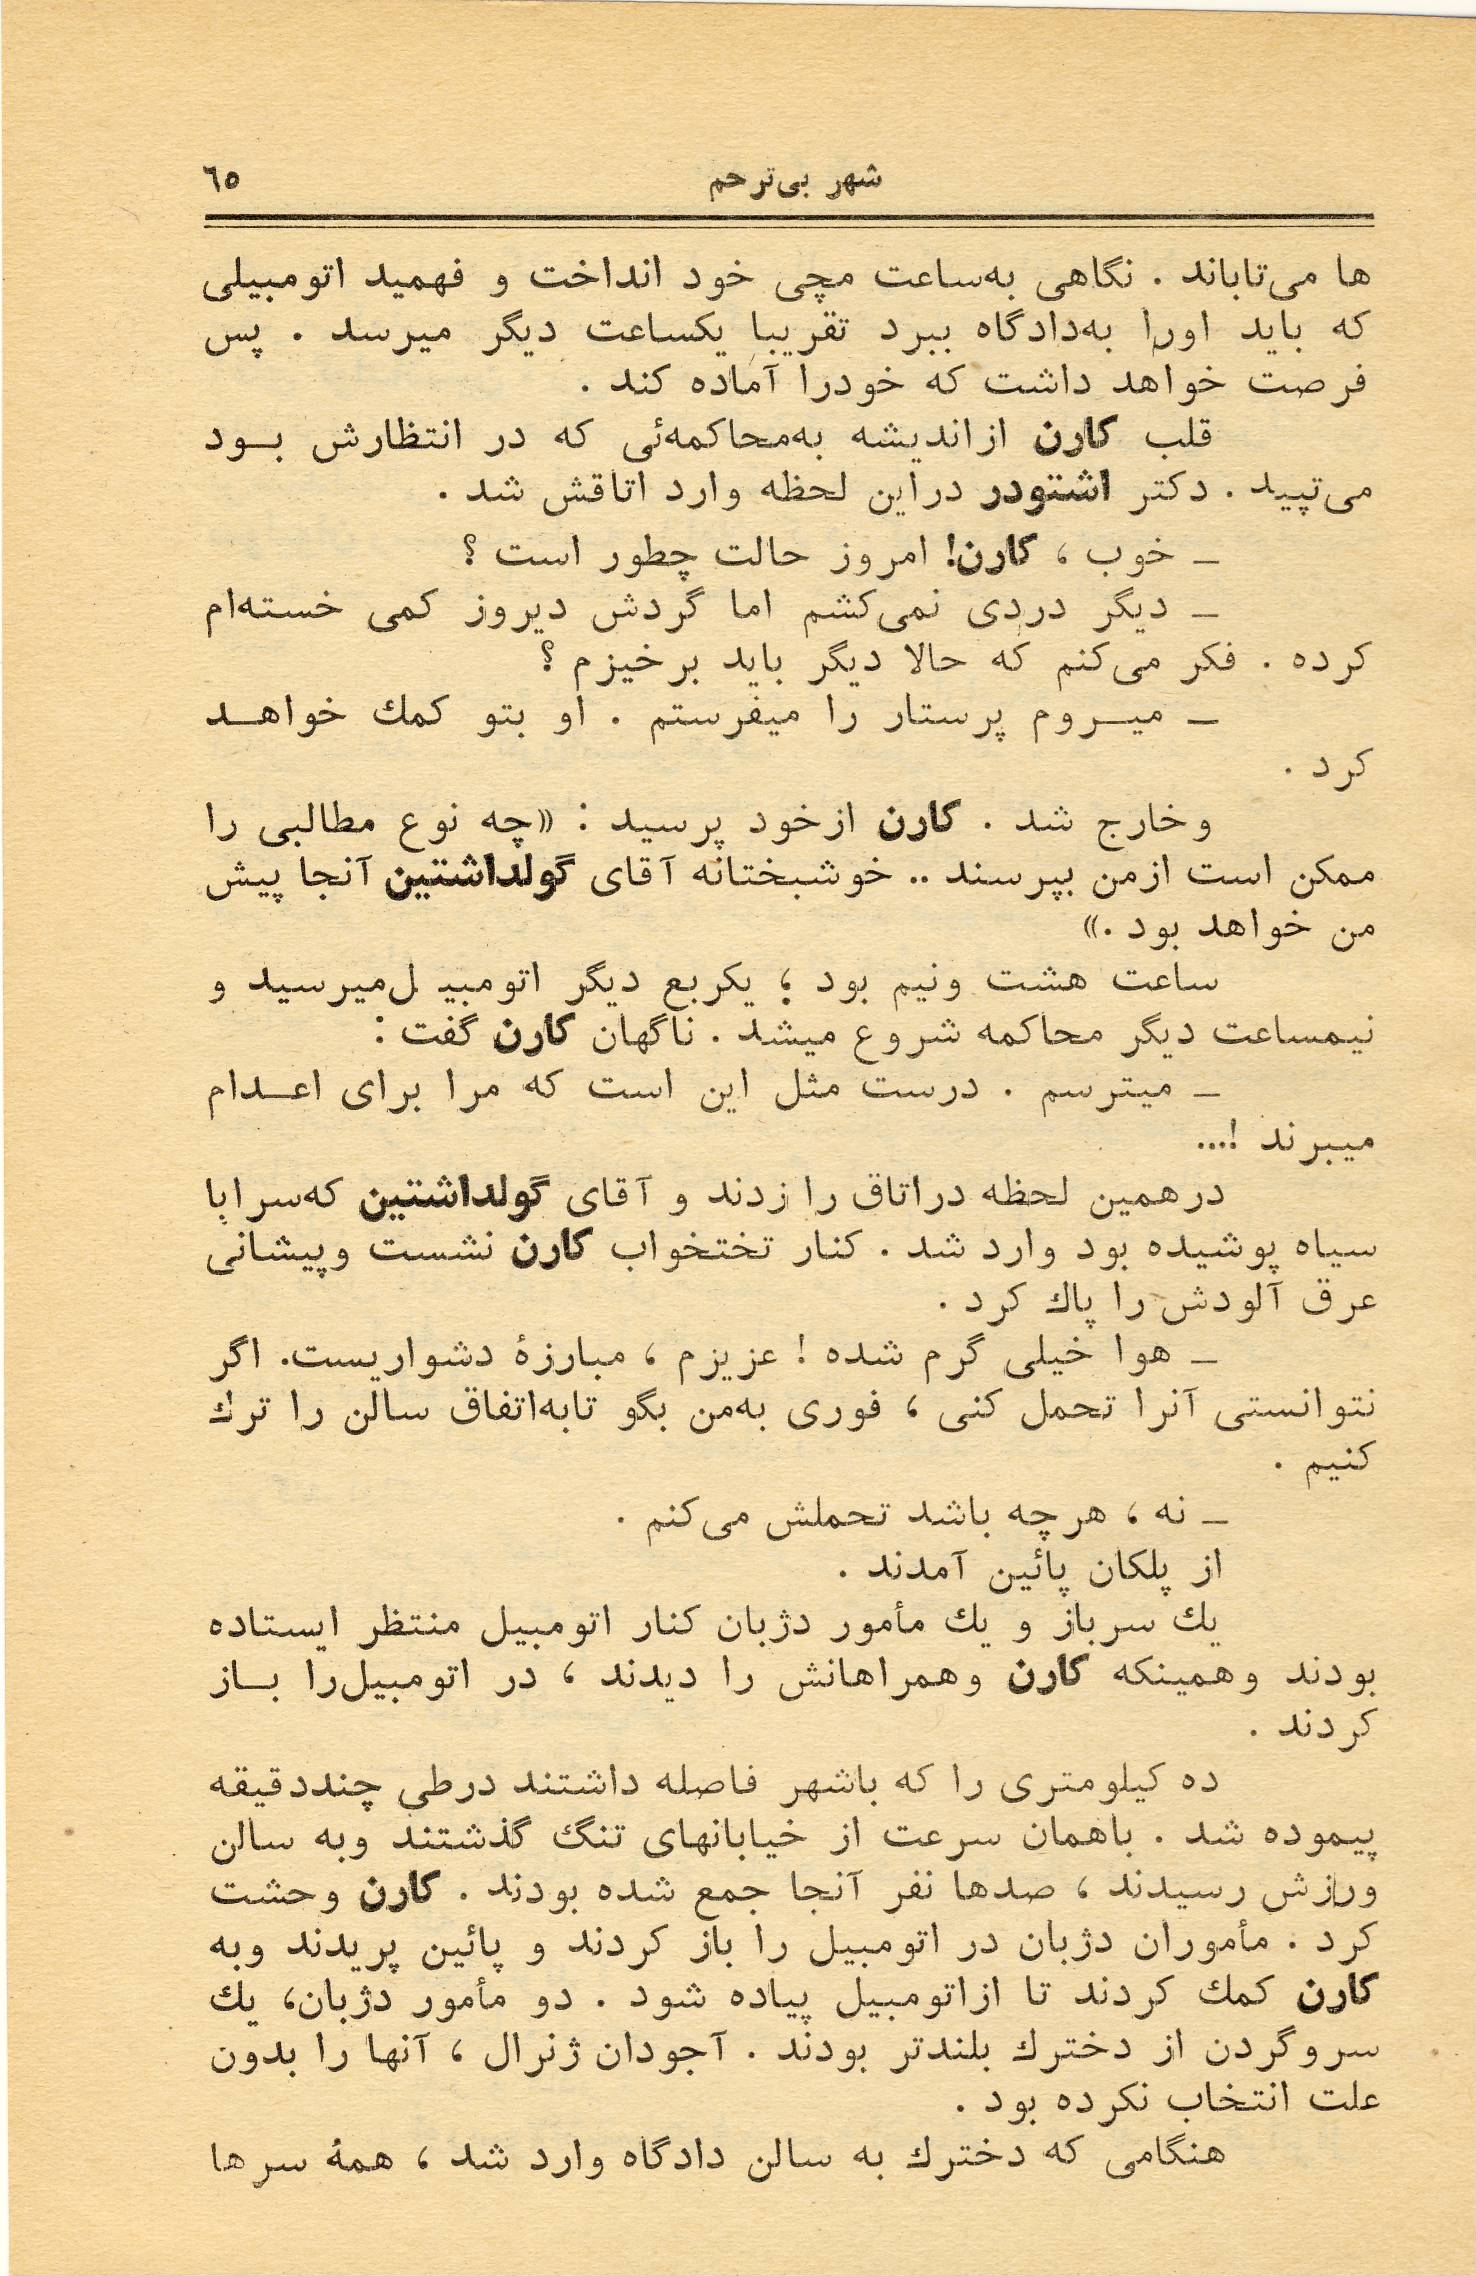 شهر بی‌ترحم ٦٥
ها می‌تاباند . نگاهی به‌ساعت مچی خود انداخت و فهمید اتومبیلی
که باید اورا به‌دادگاه ببرد تقریبا یکساعت دیگر میرسد . پس
فرصت خواهد داشت که خودرا آماده کند .
قلب کارن ازاندیشه به‌محاکمه‌ئی که در انتظارش بـود
می‌تپید . دکتر اشتودر دراین لحظه وارد اتاقش شد .
ـ خوب ، کارن! امروز حالت چطور است ؟
ـ دیگر دردی نمی‌کشم اما گردش دیروز کمی خسته‌ام
کرده . فکر می‌کنم که حالا دیگر باید برخیزم ؟
ـ میـروم پرستار را میفرستم . او بتو کمك خواهـد
کرد .
وخارج شد . کارن ازخود پرسید : «چه نوع مطالبی را
ممکن است ازمن بپرسند .. خوشبختانه آقای گولداشتین آنجا پیش
من خواهد بود .»
ساعت هشت ونیم بود ؛ یکربع دیگر اتومبیـ ل‌میرسید و
نیمساعت دیگر محاکمه شروع میشد . ناگهان کارن گفت :
ـ میترسم . درست مثل این است که مرا برای اعـدام
میبرند !...
درهمین لحظه دراتاق را زدند و آقای گولداشتین که‌سراپا
سیاه پوشیده بود وارد شد . کنار تختخواب کارن نشست وپیشانی
عرق آلودش را پاك کرد .
ـ هوا خیلی گرم شده ! عزیزم ، مبارزهٔ دشواریست. اگر
نتوانستی آنرا تحمل کنی ، فوری به‌من بگو تابه‌اتفاق سالن را ترك
کنیم .
ـ نه ، هرچه باشد تحملش می‌کنم .
از پلکان پائین آمدند .
یك سرباز و یك مأمور دژبان کنار اتومبیل منتظر ایستاده
بودند وهمینکه کارن وهمراهانش را دیدند ، در اتومبیل‌را بـاز
کردند .
ده کیلومتری را که باشهر فاصله داشتند درطی چنددقیقه
پیموده شد . باهمان سرعت از خیابانهای تنگ گذشتند وبه سالن
ورزش رسیدند ، صدها نفر آنجا جمع شده بودند . کارن وحشت
کرد . مأموران دژبان در اتومبیل را باز کردند و پائین پریدند وبه
کارن کمك کردند تا ازاتومبیل پیاده شود . دو مأمور دژبان، یك
سروگردن از دخترك بلندتر بودند . آجودان ژنرال ، آنها را بدون
علت انتخاب نکرده بود .
هنگامی که دخترك به سالن دادگاه وارد شد ، همهٔ سرها